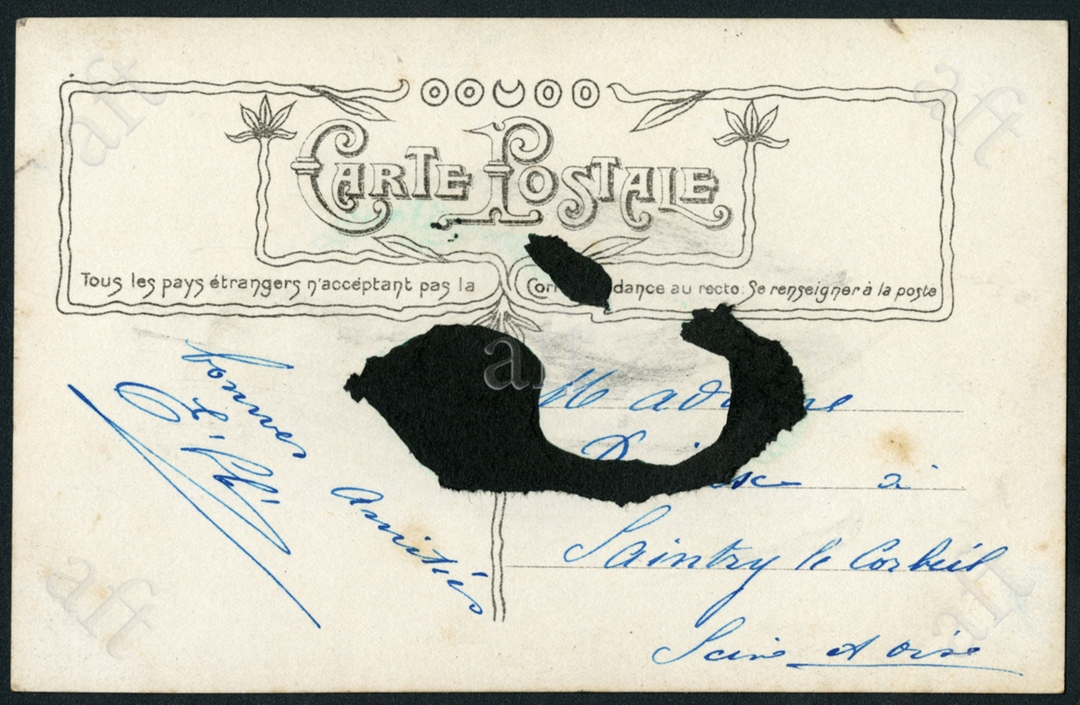 CARTE POSTALE
Tous les pays étrangers n'acceptant pas la Cor dance au recto. Se renseigner à la poste
bonnes amitiés
M ad e
à
Saintry le Corbeil
Seine et oise
aft
aft
aft
aft